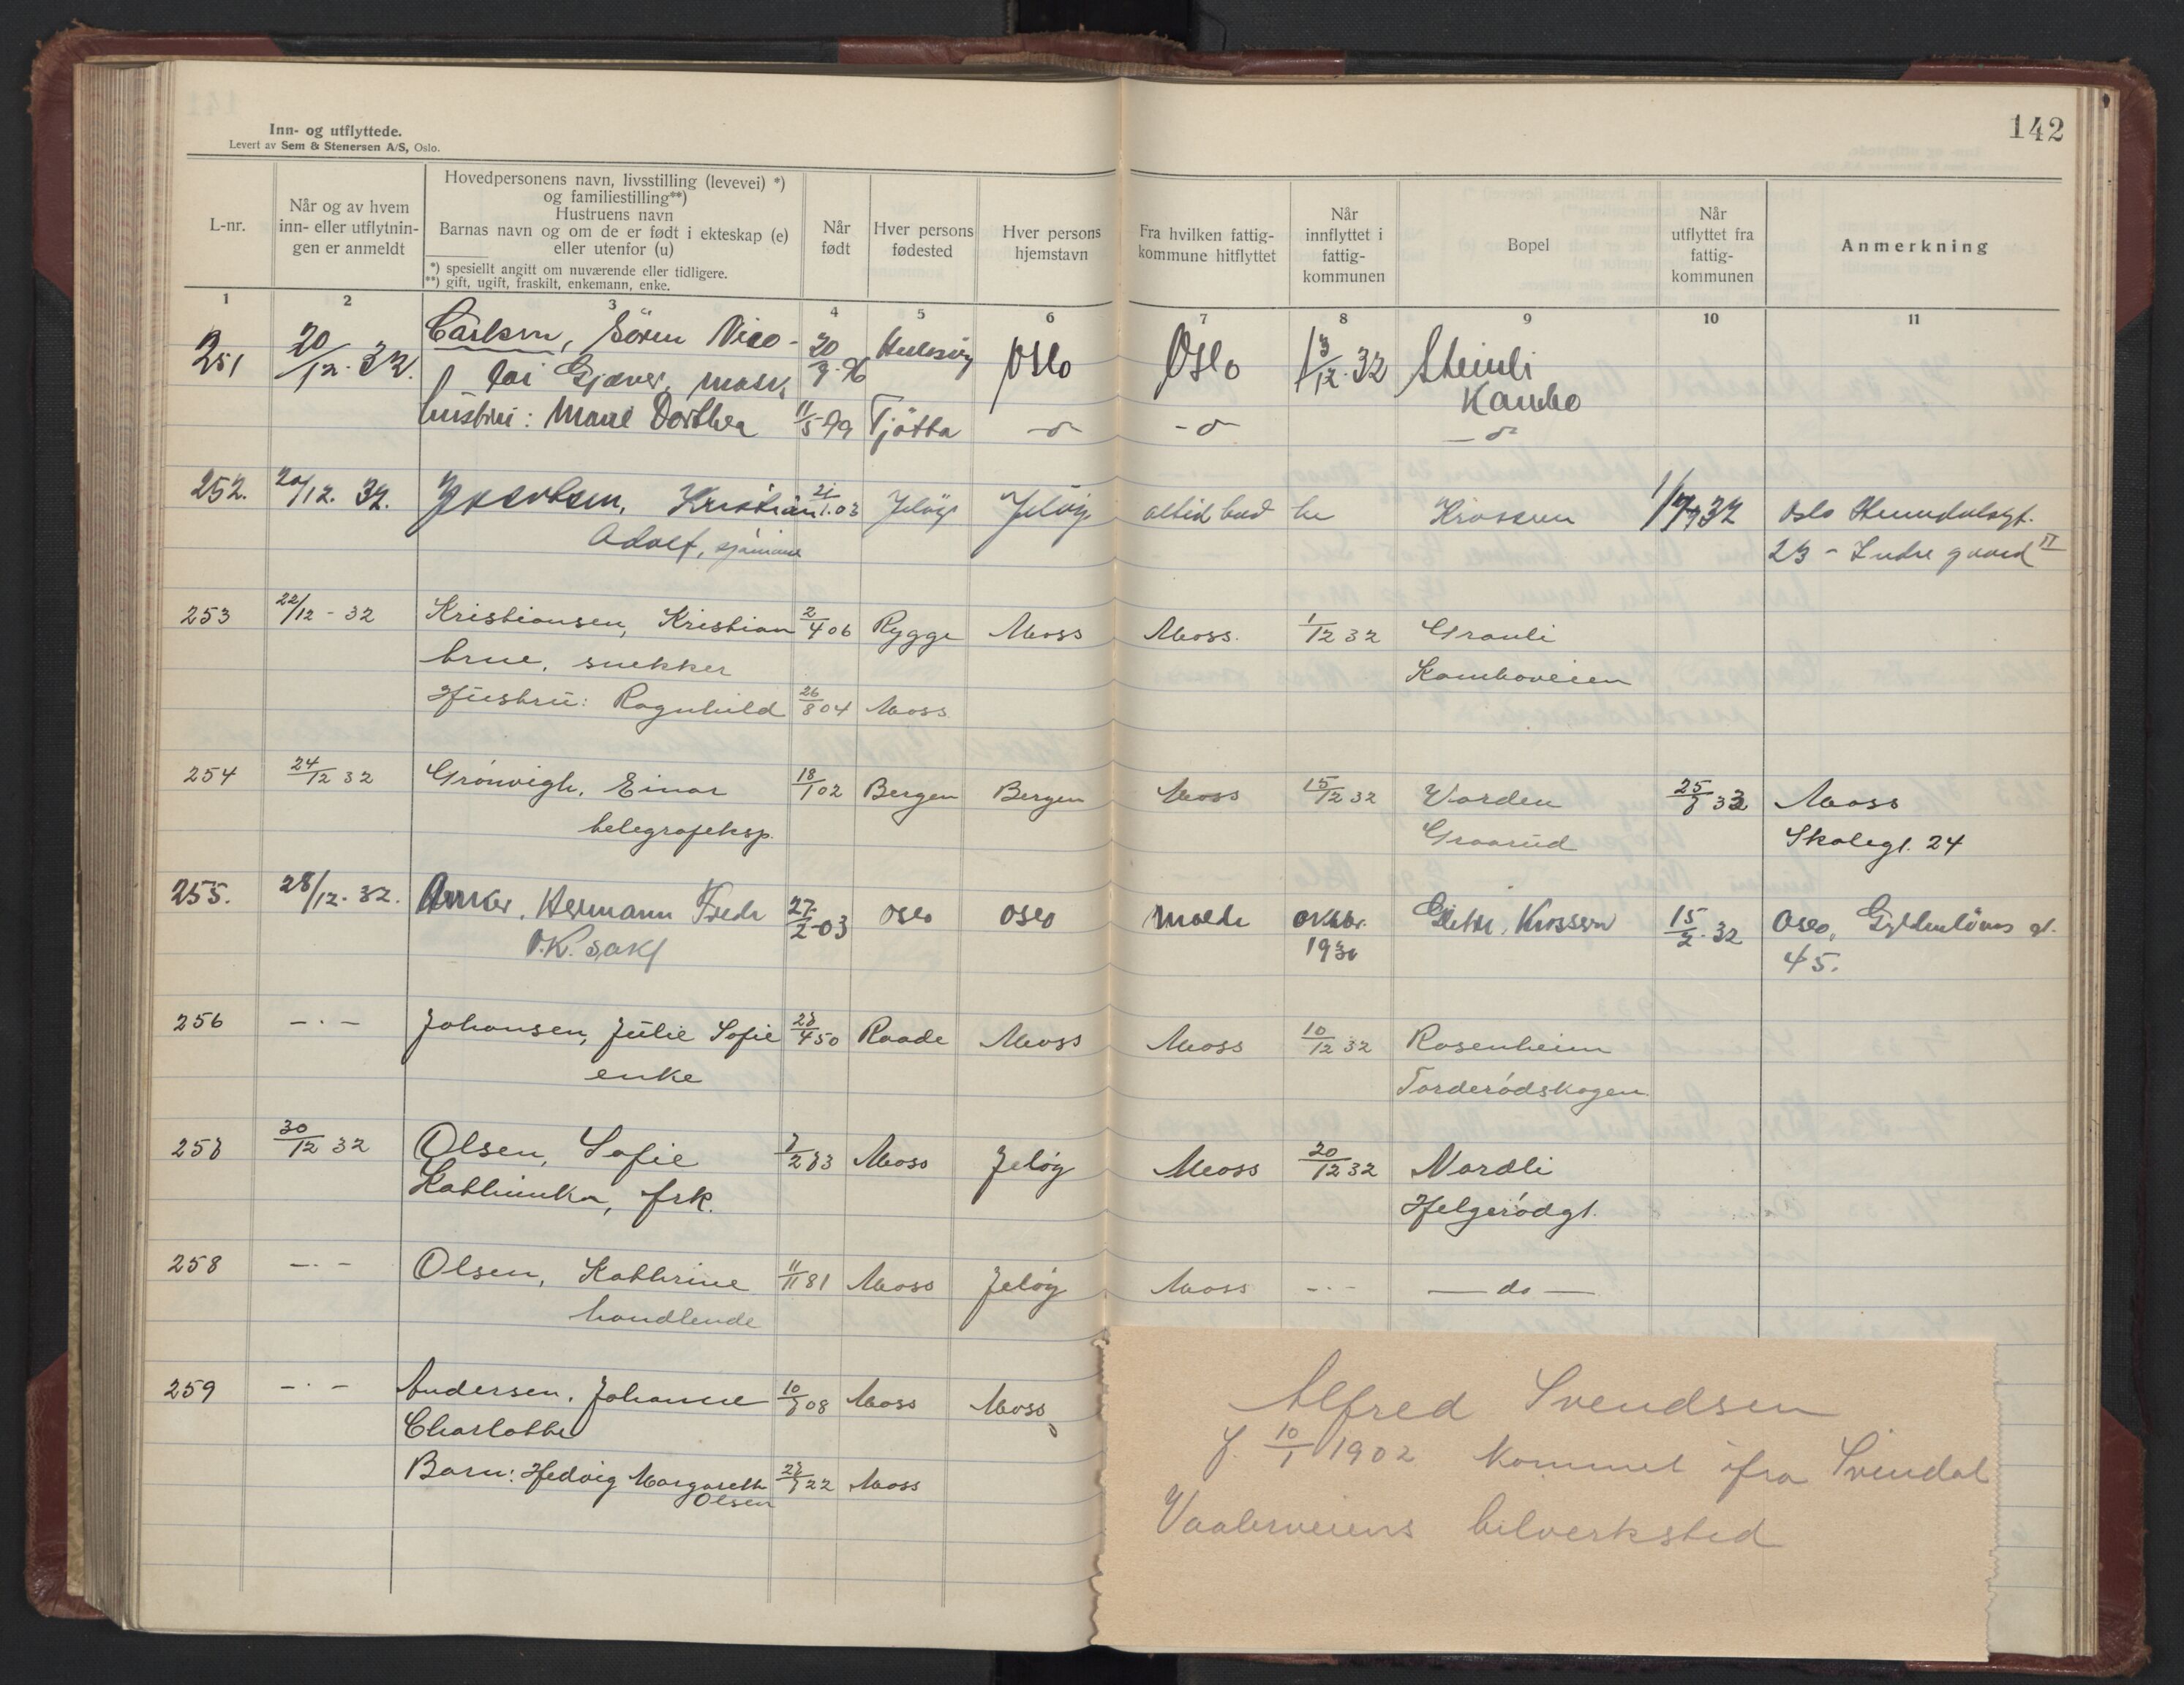 142
Inn- og utflyttede.
Levert av Sem & Stenersen A/S, Oslo.
L-nr.
Når og av hvem
inn- eller utflytnin-
gen er anmeldt
Hovedpersonens navn, livsstilling (levevei) *)
og familiestilling**)
Hustruens navn
Barnas navn og om de er født i ekteskap (e)
eller utenfor (u)
*) spesiellt angitt om nuværende eller tidligere.
**) gift, ugift, fraskilt, enkemann, enke.
Når
født
Hver persons
fødested
Hver persons
hjemstavn
Fra hvilken fattig-
kommune hitflyttet
Når
innflyttet i
fattig-
kommunen
Bopel
Når
utflyttet fra
fattig-
kommunen
Anmerkning
1 2 3 4 5 6 7 8 9 10 11
251 20/12.32. Carlsen, Sören Nico- Oslo Oslo Steinli
lai Gjæver, Kambo
hustru: Marie Dorthea 11/5-99 Tjøtta -o- -o- -o-
252. 20/12. 32. Jacobsen, Kristian 21/1.03 Jeløy Jeløy altid bod he Krossen Oslo
Adolf, sjømann 23 - Indre gaard II
253 22/12-32 Kristiansen, Kristian 2/4 06 Rygge Moss Moss. 1/12 32 Granli
snekker Kamboveien
Hustru: Ragnhild 26/8 04 Moss
254 24/12 32 Grönvigh, Einar 18/1 02 Bergen Bergen Moss 15/12 32 Varden 25/7 33 Moss
telegrafeksp. Graarud Skolegt. 24
255. 28/12.32. Hermann Fredr 27/2-03 Oslo Oslo Molde Krossen 15/2.32 Oslo, Gyldenløves gt.
45.
256 -.- Johansen, Julie Sofie 27/4 50 Raade Moss Moss 10/12 32 Rosenheim
enke Torderödskogen.
257 30/12 32 Olsen, Sofie 7/2 83 Moss Jeløy Moss 20/12 32 Nordli
Kathinka, frk. Helgerödgt.
258 -.- Olsen, Kathrine 11/11 81 Moss Jeløy Moss -.- — do —
handlende
259 -.- Andersen, Johanne 10/7 08 Moss Moss
Charlotte
Barn: Hedvig Margareth 27/7 22 Moss
Olsen
Alfred Svendsen
f. 10/1 1902 kommet ifra Svindal
Vaalerveiens bilverksted